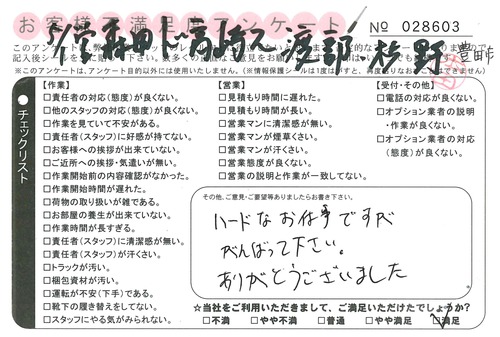 お客様満足度アンケート
No 028603
豊田市
※このアンケートは、アンケート目的以外には使用いたしません。
チェックリスト
【作業】
□責任者の対応(態度)が良くない。
□他のスタッフの対応(態度)が良くない。
□作業を見ていて不安がある。
□責任者(スタッフ)に好感が持てない。
□お客様への挨拶が出来ていない。
□ご近所への挨拶・気遣いが無い。
□作業開始前の内容確認がなかった。
□作業開始時間が遅れた。
□荷物の取り扱いが雑である。
□お部屋の養生が出来ていない。
□作業時間が長すぎる。
□責任者(スタッフ)に清潔感が無い。
□責任者(スタッフ)が汗くさい。
□トラックが汚い。
□梱包資材が汚い。
□運転が不安(下手)である。
□靴下の履き替えをしてない。
□スタッフにやる気がみられない。
【営業】
□見積もり時間に遅れた。
□見積もり時間が長い。
□営業マンに清潔感が無い。
□営業マンが煙草くさい。
□営業マンが汗くさい。
□営業態度が良くない。
□営業の説明と作業が一致してない。
【受付・その他】
□電話の対応が良くない。
□オプション業者の説明
・作業が良くない。
□オプション業者の対応
(態度)が良くない。
その他、ご意見・ご要望等ありましたらお書き下さい。
ハードなお仕事ですが
がんばって下さい。
ありがとうございました
☆当社をご利用いただきまして、ご満足いただけたでしょうか?
□不満 □やや不満 □普通 □やや満足 ☑満足